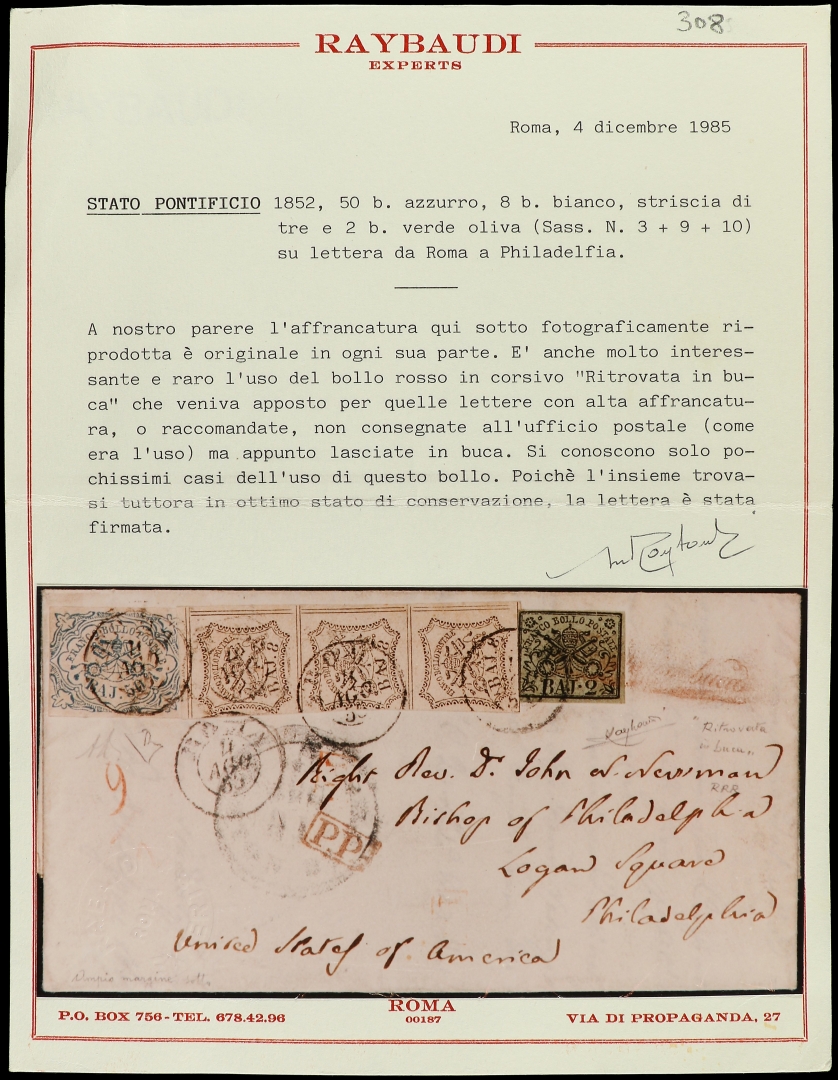 308
RAYBAUDI
EXPERTS
Roma, 4 dicembre 1985
STATO PONTIFICIO 1852, 50 b. azzurro, 8 b. bianco, striscia di
tre e 2 b. verde oliva (Sass. N. 3 + 9 + 10)
su lettera da Roma a Philadelfia.
A nostro parere l'affrancatura qui sotto fotograficamente ri-
prodotta è originale in ogni sua parte. E' anche molto interes-
sante e raro l'uso del bollo rosso in corsivo "Ritrovata in bu-
ca" che veniva apposto per quelle lettere con alta affrancatu-
ra, o raccomandate, non consegnate all'ufficio postale (come
era l'uso) ma appunto lasciate in buca. Si conoscono solo po-
chissimi casi dell'uso di questo bollo. Poichè l'insieme trova-
si tuttora in ottimo stato di conservazione, la lettera è stata
firmata.
FRANCO BOLLO PONTIFICIO
BAJ-8
BAJ-8
BAJ-8
FRANCO BOLLO PONTIFICIO
BAJ-2
"Ritrovata
in buca"
RRR
ROMA
AGO
9
P.P
Right Rev. Dr. John N. Newman
Bishop of Philadelphia
Logan Square
Philadelphia
United States of America
Ampio margine
ROMA
00187
P.O. BOX 756 - TEL. 678.42.96
VIA DI PROPAGANDA, 27